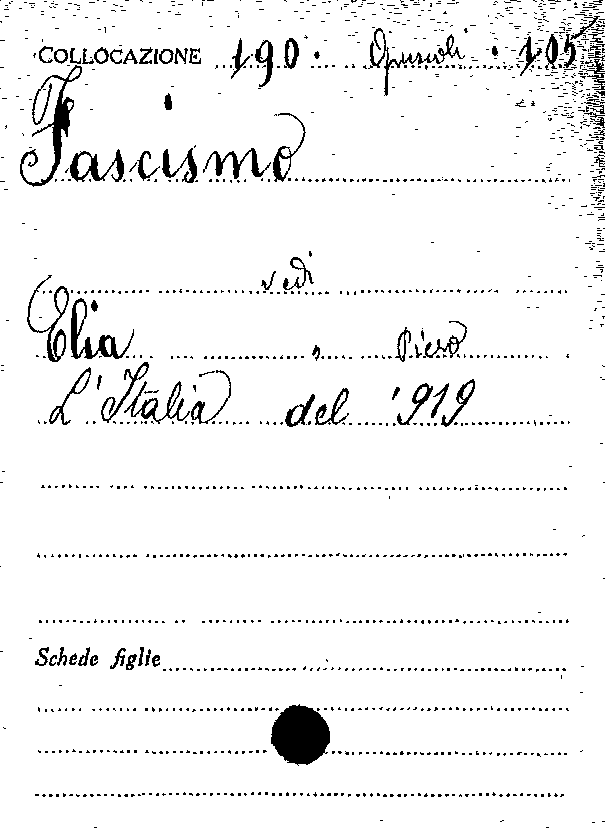 COLLOCAZIONE 190. Opuscoli. 105
Fascismo
vedi
Elia , Piero
L'Italia del '919
Schede figlie